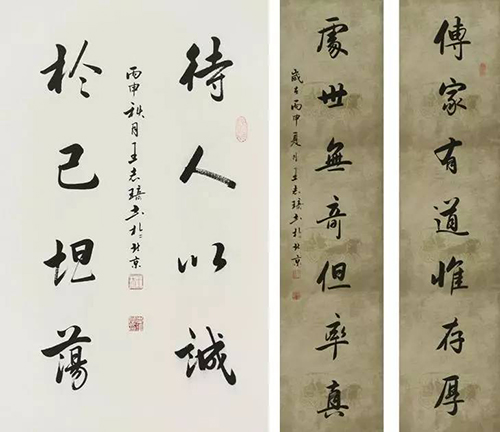 傳家有道惟存厚
處世無奇但率真
歲在丙申夏月王志书於北京
待人以誠
於己坦蕩
丙申秋月王志书於北京